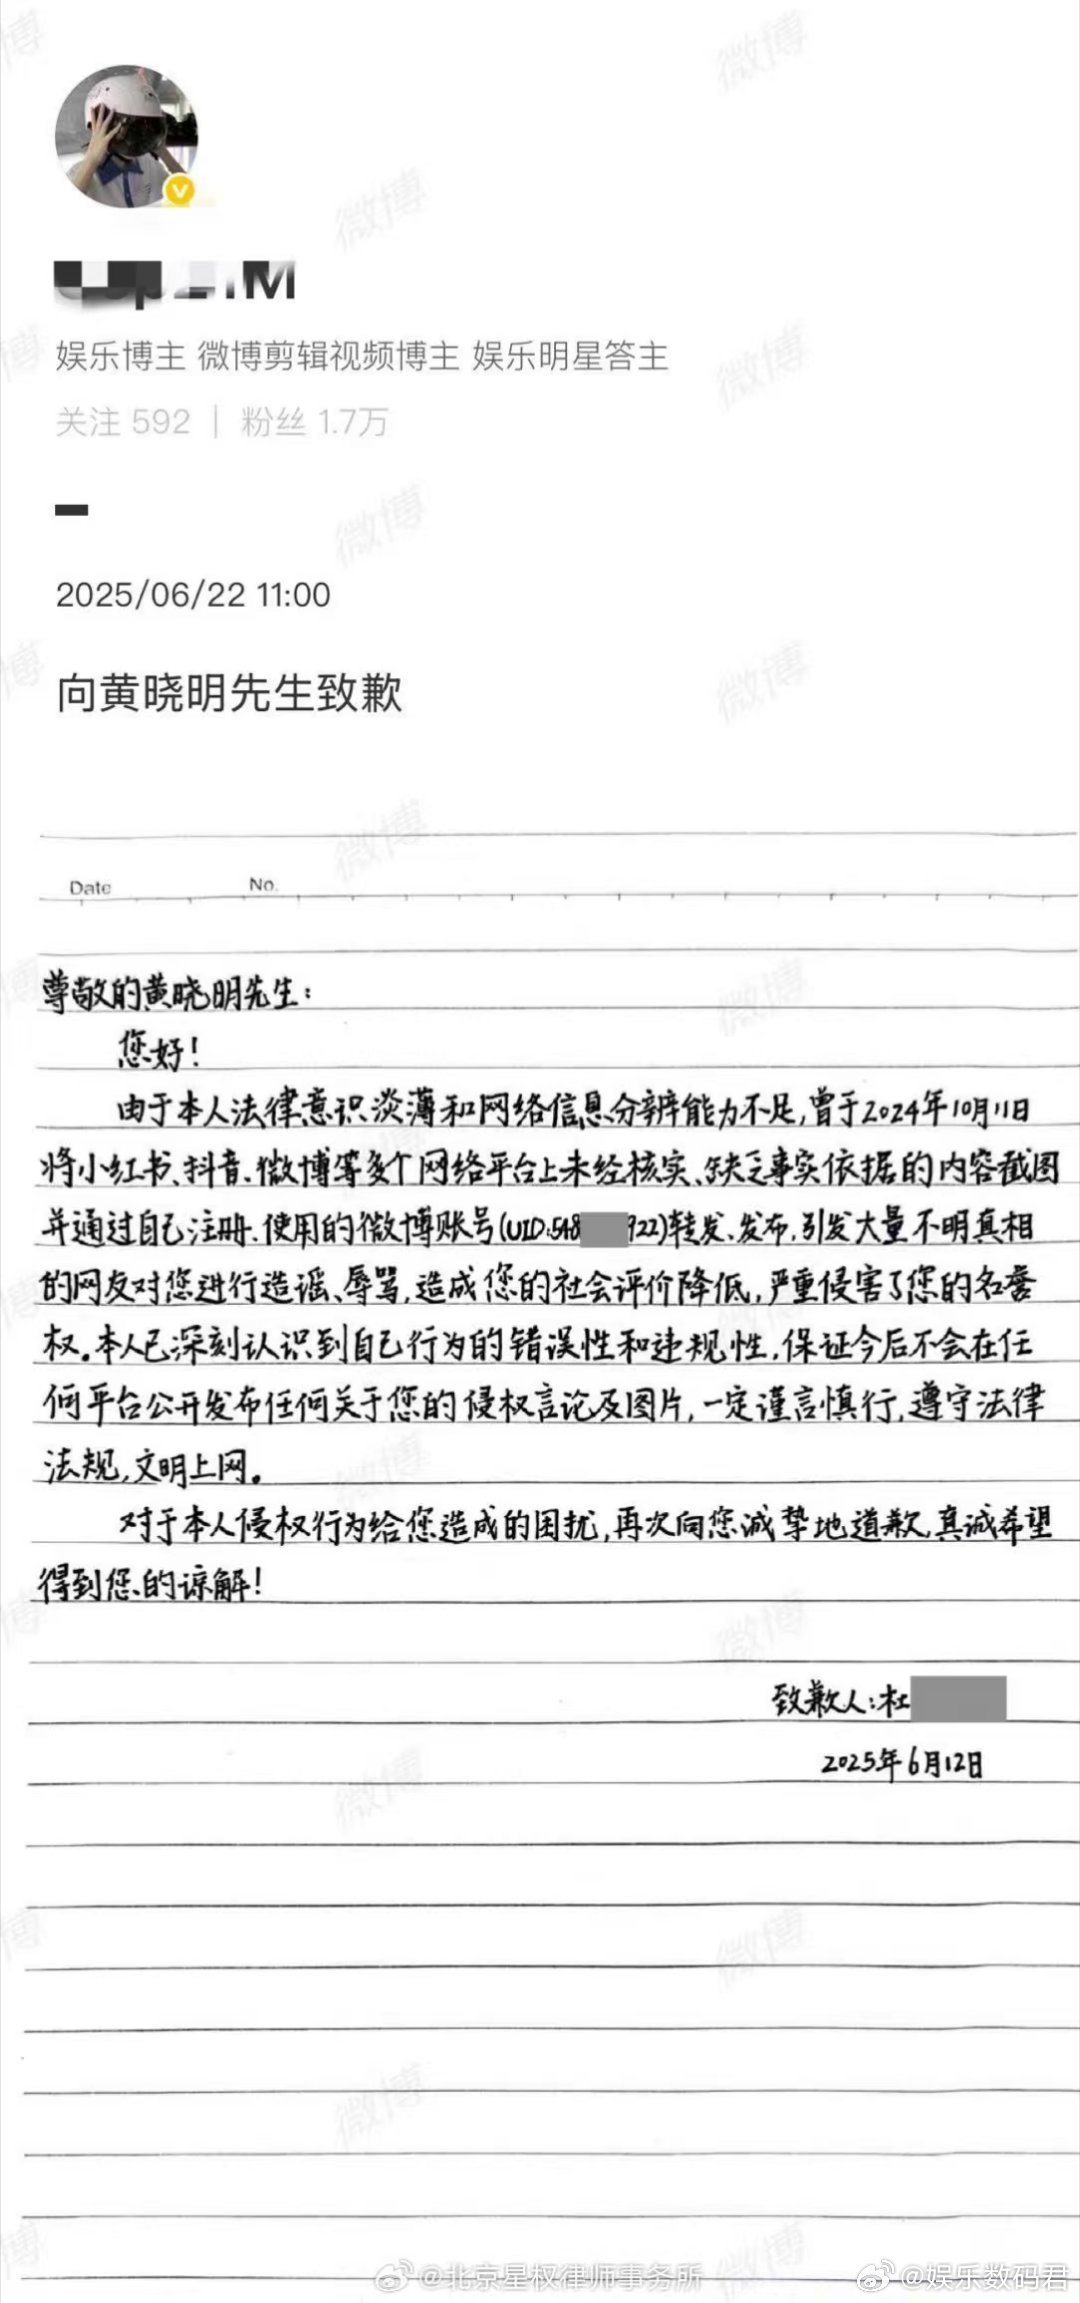 娱乐博主 微博剪辑视频博主 娱乐明星答主
关注 592 | 粉丝 1.7万
2025/06/22 11:00
向黄晓明先生致歉
Date No.
尊敬的黄晓明先生:
您好!
由于本人法律意识淡薄和网络信息分辨能力不足,曾于2024年10月11日
将小红书、抖音、微博等多个网络平台上未经核实、缺乏事实依据的内容截图
并通过自己注册、使用的微博账号(UID:548 922)转发、发布,引发大量不明真相
的网友对您进行造谣、辱骂,造成您的社会评价降低,严重侵害了您的名誉
权。本人已深刻认识到自己行为的错误性和违规性,保证今后不会在任
何平台公开发布任何关于您的侵权言论及图片,一定谨言慎行,遵守法律
法规,文明上网。
对于本人侵权行为给您造成的困扰,再次向您诚挚地道歉,真诚希望
得到您的谅解!
致歉人:杜
2025年6月12日
@北京星权律师事务所
@娱乐数码君
微博